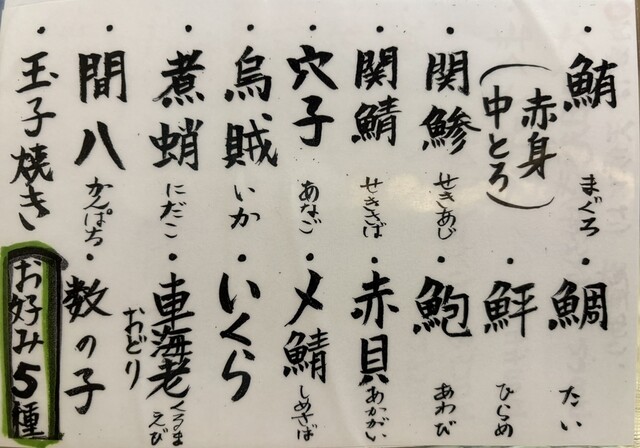 ・鮪 まぐろ
(赤身
中とろ)
・関鯵 せきあじ
・関鯖 せきさば
・穴子 あなご
・烏賊 いか
・煮蛸 にだこ
・間八 かんぱち
・玉子焼き
・鯛 たい
・鮃 ひらめ
・鮑 あわび
・赤貝 あかがい
・〆鯖 しめさば
・いくら
・車海老 くるまえび
おどり
・数の子
お好み5種